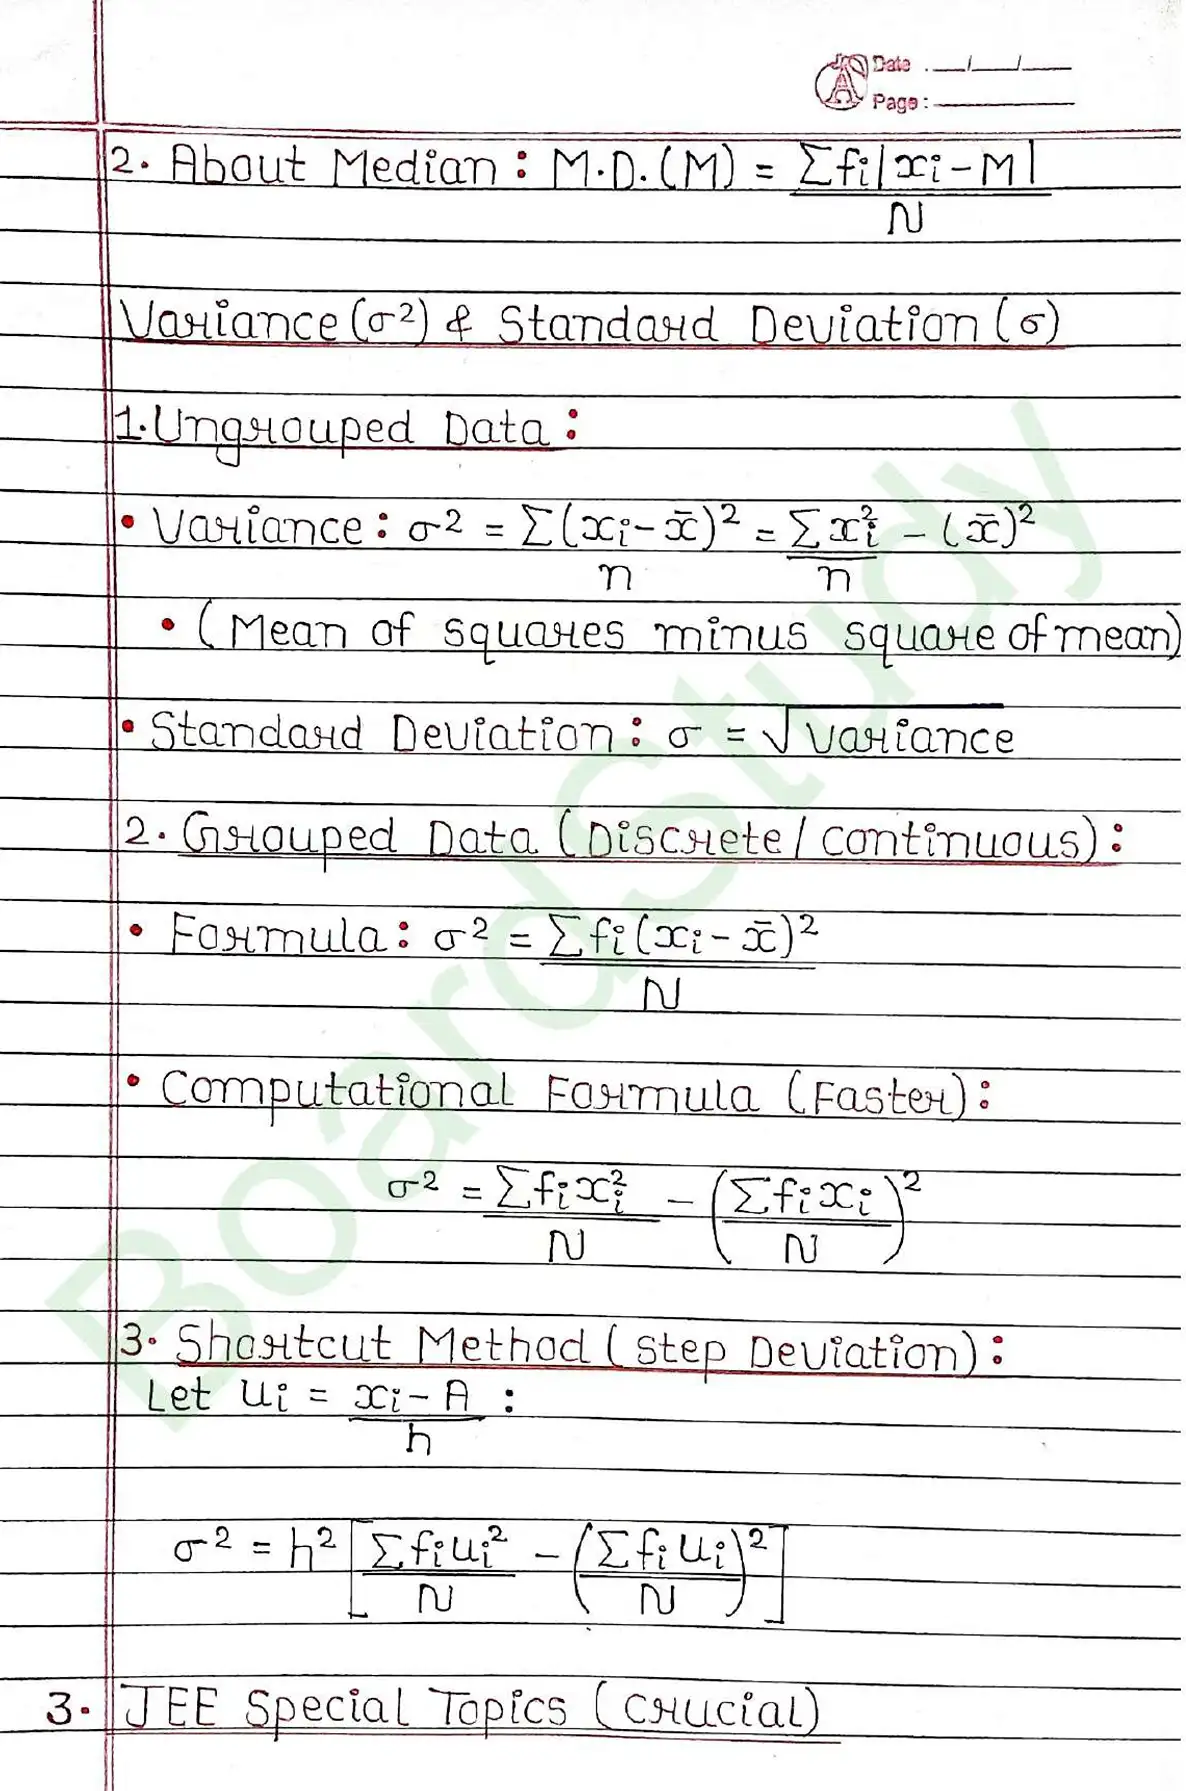 Date . __/__/__
Page : ______
2. About Median : M.D.(M) = Σfi|xi - M|
N
Variance (σ²) & Standard Deviation (σ)
1. Ungrouped Data :
• Variance : σ² = Σ(xi - x̄)² = Σxi² - (x̄)²
n n
• (Mean of squares minus square of mean)
• Standard Deviation : σ = √variance
2. Grouped Data (Discrete / continuous) :
• Formula : σ² = Σfi(xi - x̄)²
N
• Computational Formula (Faster) :
σ² = Σfixi² - (Σfixi)²
N N
3. Shortcut Method (Step Deviation) :
Let ui = xi - A :
h
σ² = h² [Σfiui² - (Σfiui)²]
N N
3. JEE Special Topics (Crucial)
BoardStudy